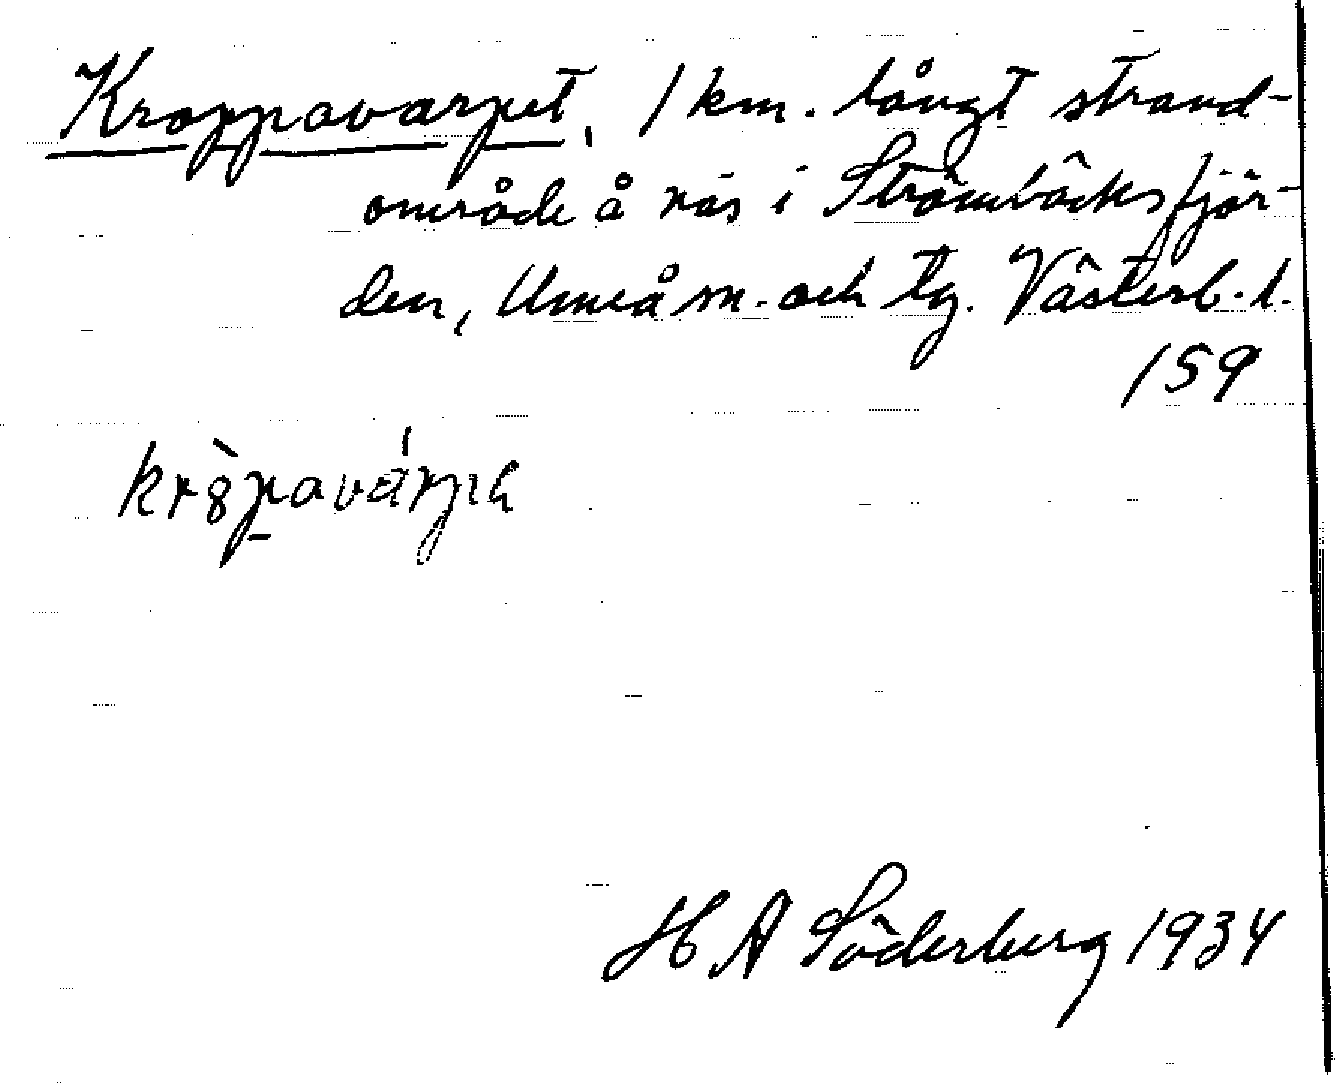 Kroppavarpet, 1 km. långt strand-
område å näs i Strömbäcksfjär-
den, Umeå sn. och tg. Västerb. l.
159
H A Söderberg 1934